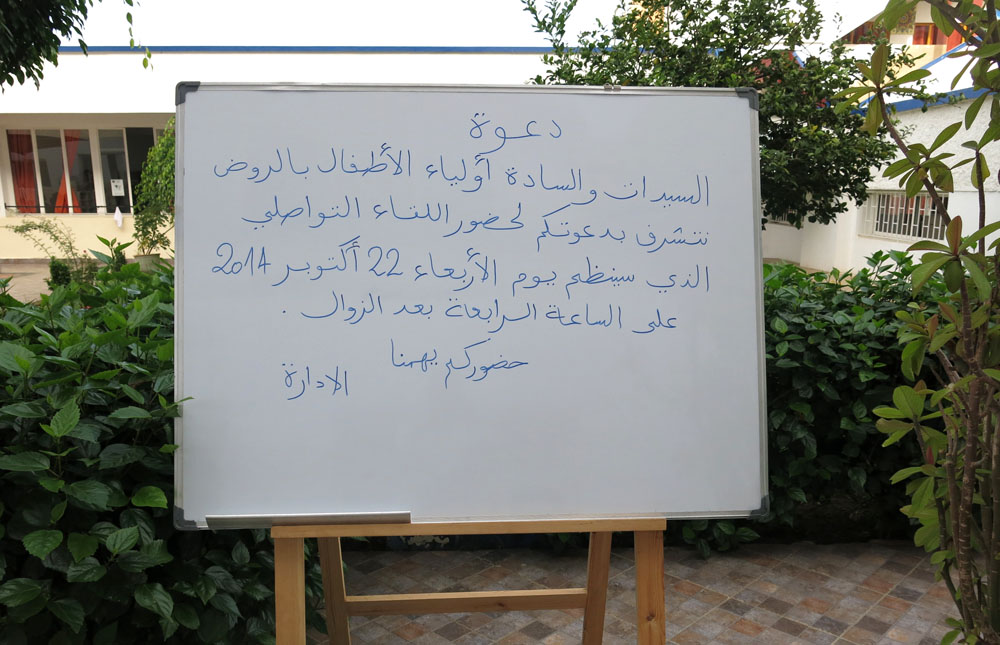 دعوة
السيدات والسادة أولياء الأطفال بالروض
نتشرف بدعوتكم لحضور اللقاء التواصلي
الذي سينظم يوم الأربعاء 22 أكتوبر 2014
على الساعة الرابعة بعد الزوال .
حضوركم يهمنا
الادارة